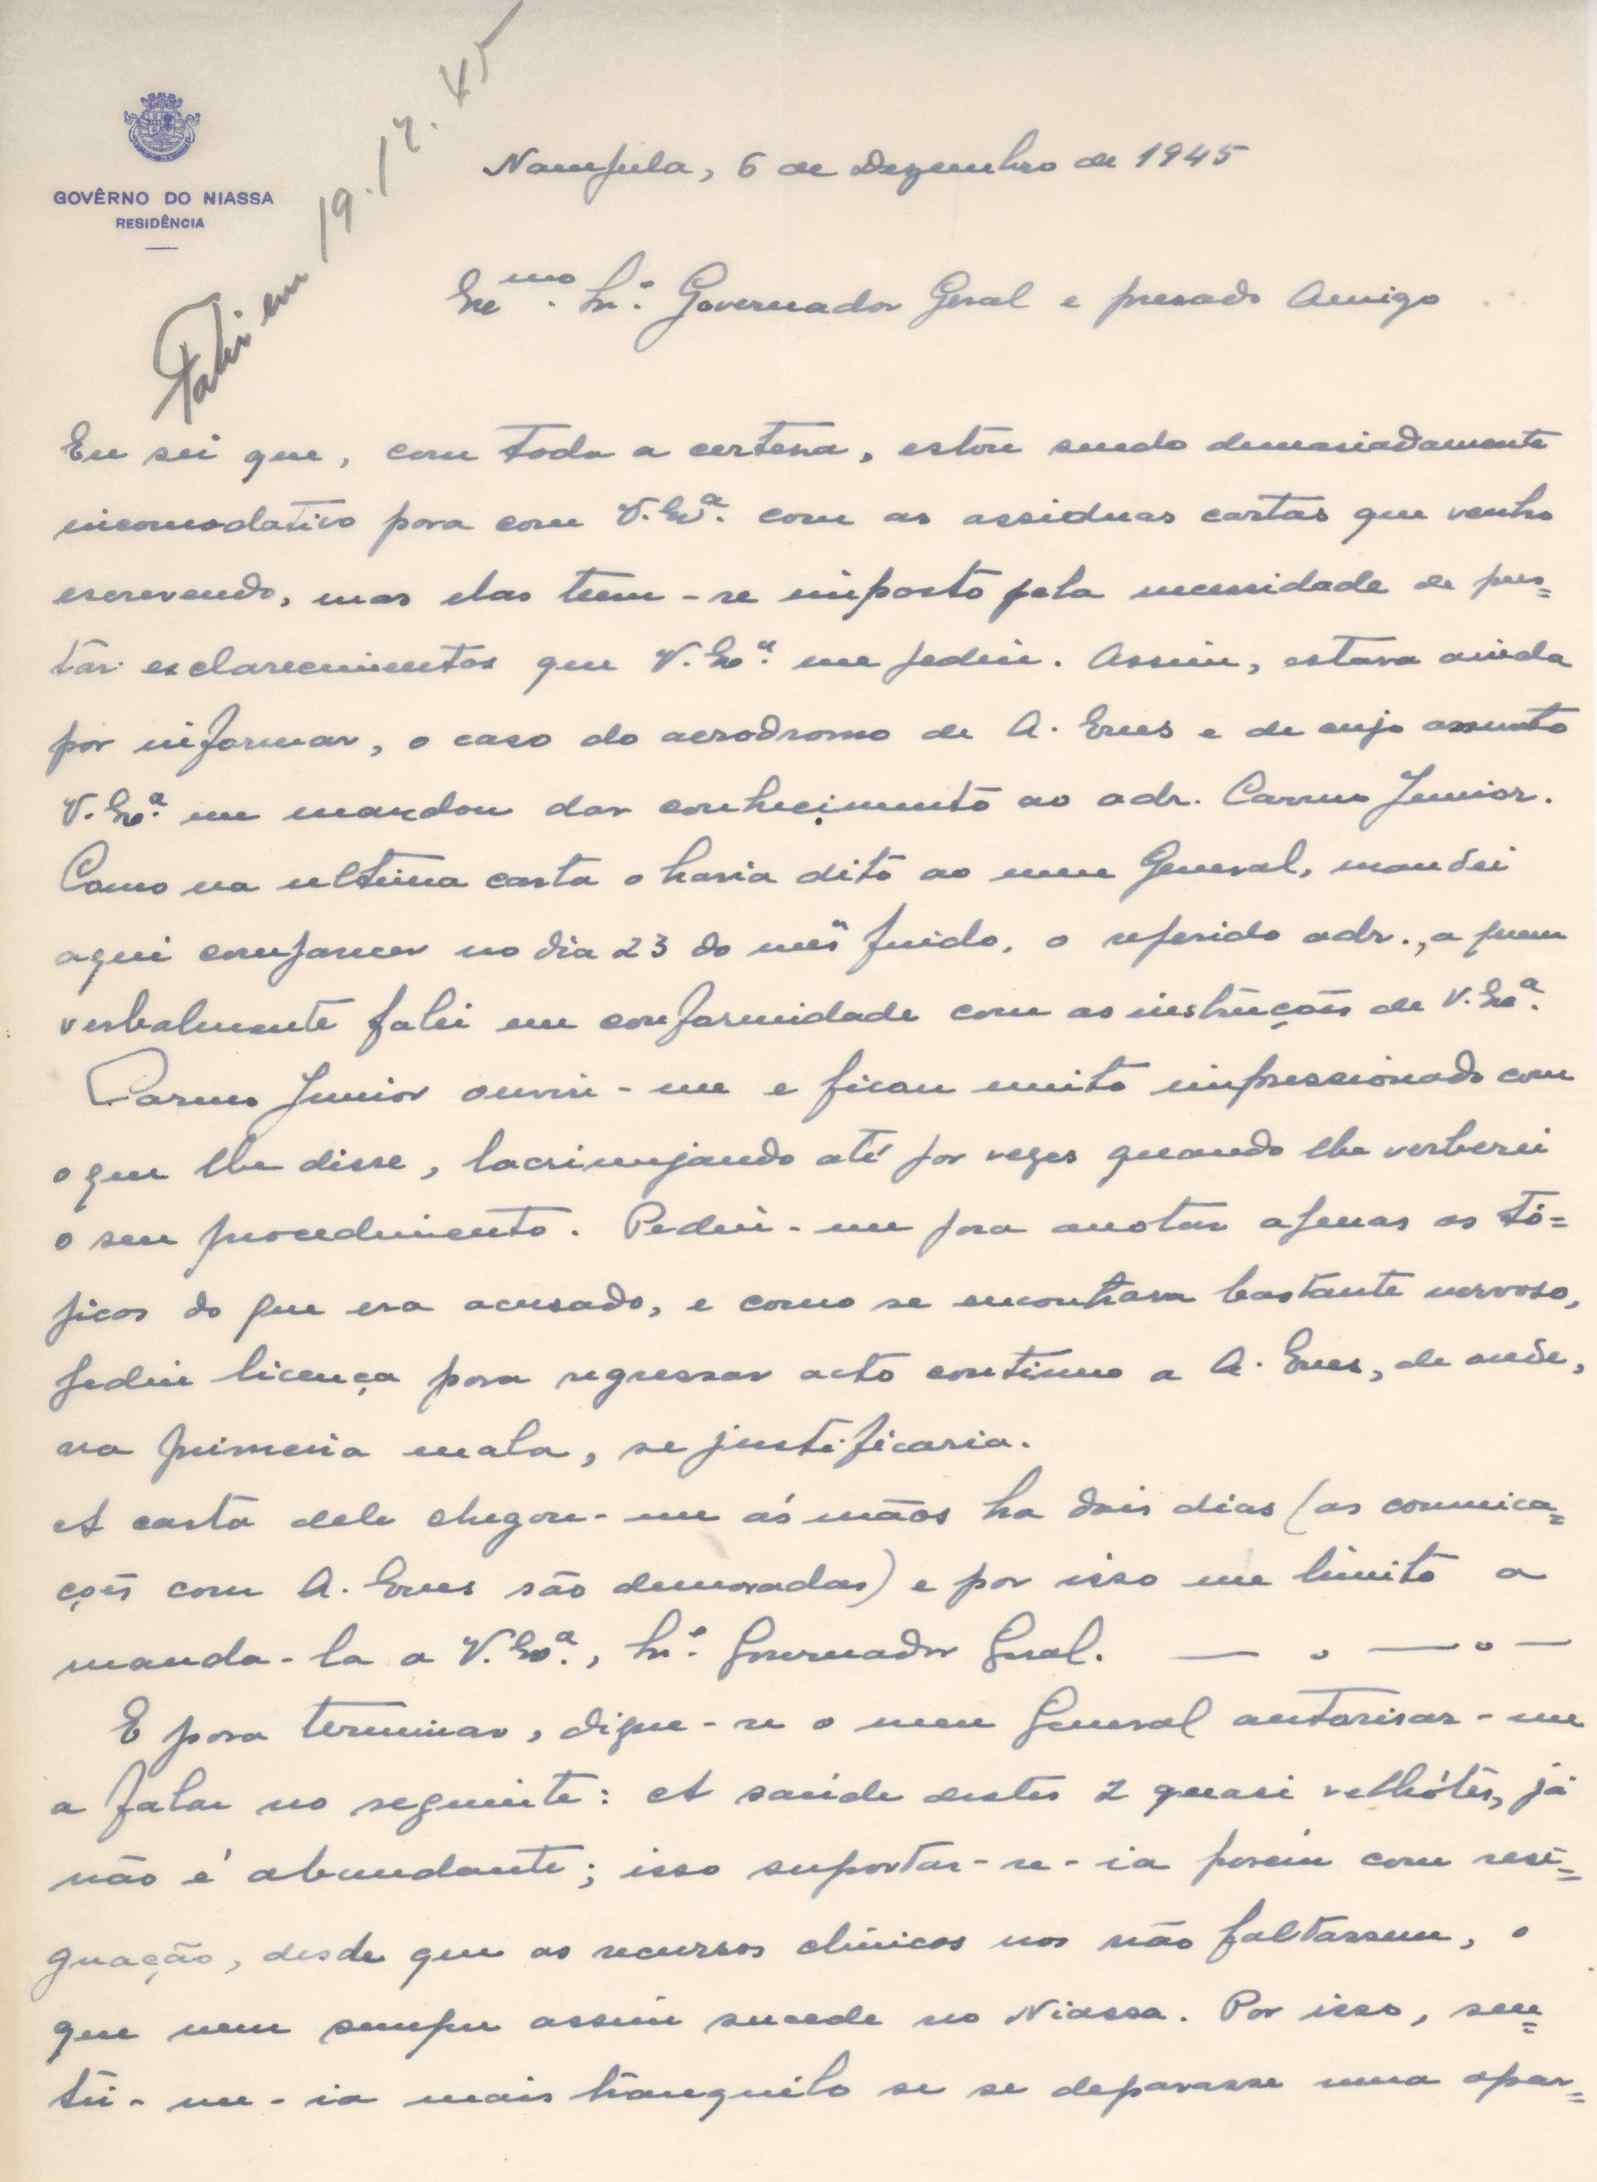 GOVÊRNO DO NIASSA
RESIDÊNCIA
Falei em 19.12.45
Nampula, 6 de Dezembro de 1945
Exmo. Snr. Governador Geral e presado Amigo
Eu sei que, com toda a certesa, estou sendo demasiadamente
incomodativo para com V. Exª. com as assiduas cartas que venho
escrevendo, mas elas teem-se imposto pela necessidade de pres=
tar esclarecimentos que V. Exª. me pediu. Assim, estava ainda
por informar, o caso do aerodromo de A. Enes e de cujo assunto
V. Exª. me mandou dar conhecimento ao adr. Carmo Junior.
Como na ultima carta o havia dito ao meu General, mandei
aqui comparecer no dia 23 do mês findo, o referido adr., a quem
verbalmente falei em conformidade com as instruções de V. Exª.
Carmo Junior ouviu-me e ficou muito impressionado com
o que lhe disse, lacrimejando até por vezes quando lhe verberei
o seu procedimento. Pediu-me para anotar apenas os tó=
picos do que era acusado, e como se encontrava bastante nervoso,
pediu licença para regressar acto continuo a A. Enes, de onde,
na primeira mala, se justificaria.
A carta dele chegou-me ás mãos ha dois dias (as comunica=
ções com A. Enes são demoradas) e por isso me limito a
manda-la a V. Exª., Snr. Governador Geral.
E para terminar, digne-se o meu General autorisar-me
a falar no seguinte: A saúde destes 2 quasi velhótes, já
não é abundante; isso suportar-se-ia porém com resi=
gnação, desde que os recursos clinicos nos não faltassem, o
que nem sempre assim sucede no Niassa. Por isso, sen=
tir-me-ia mais tranquilo se se deparasse uma opor=